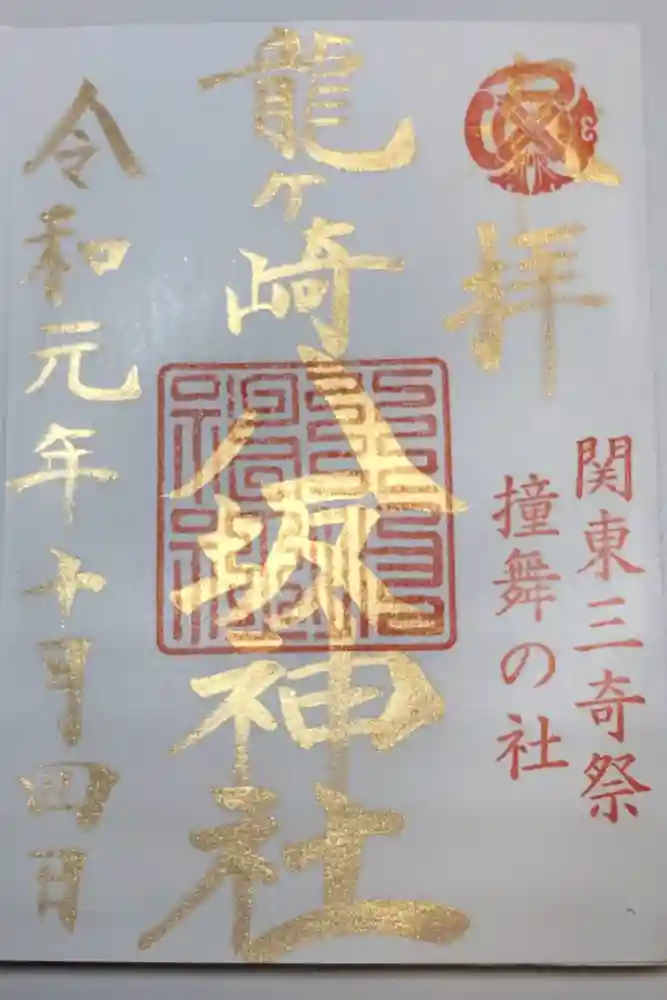 奉拝
関東三奇祭
撞舞の社
龍ヶ崎八坂神社
令和元年十月十四日